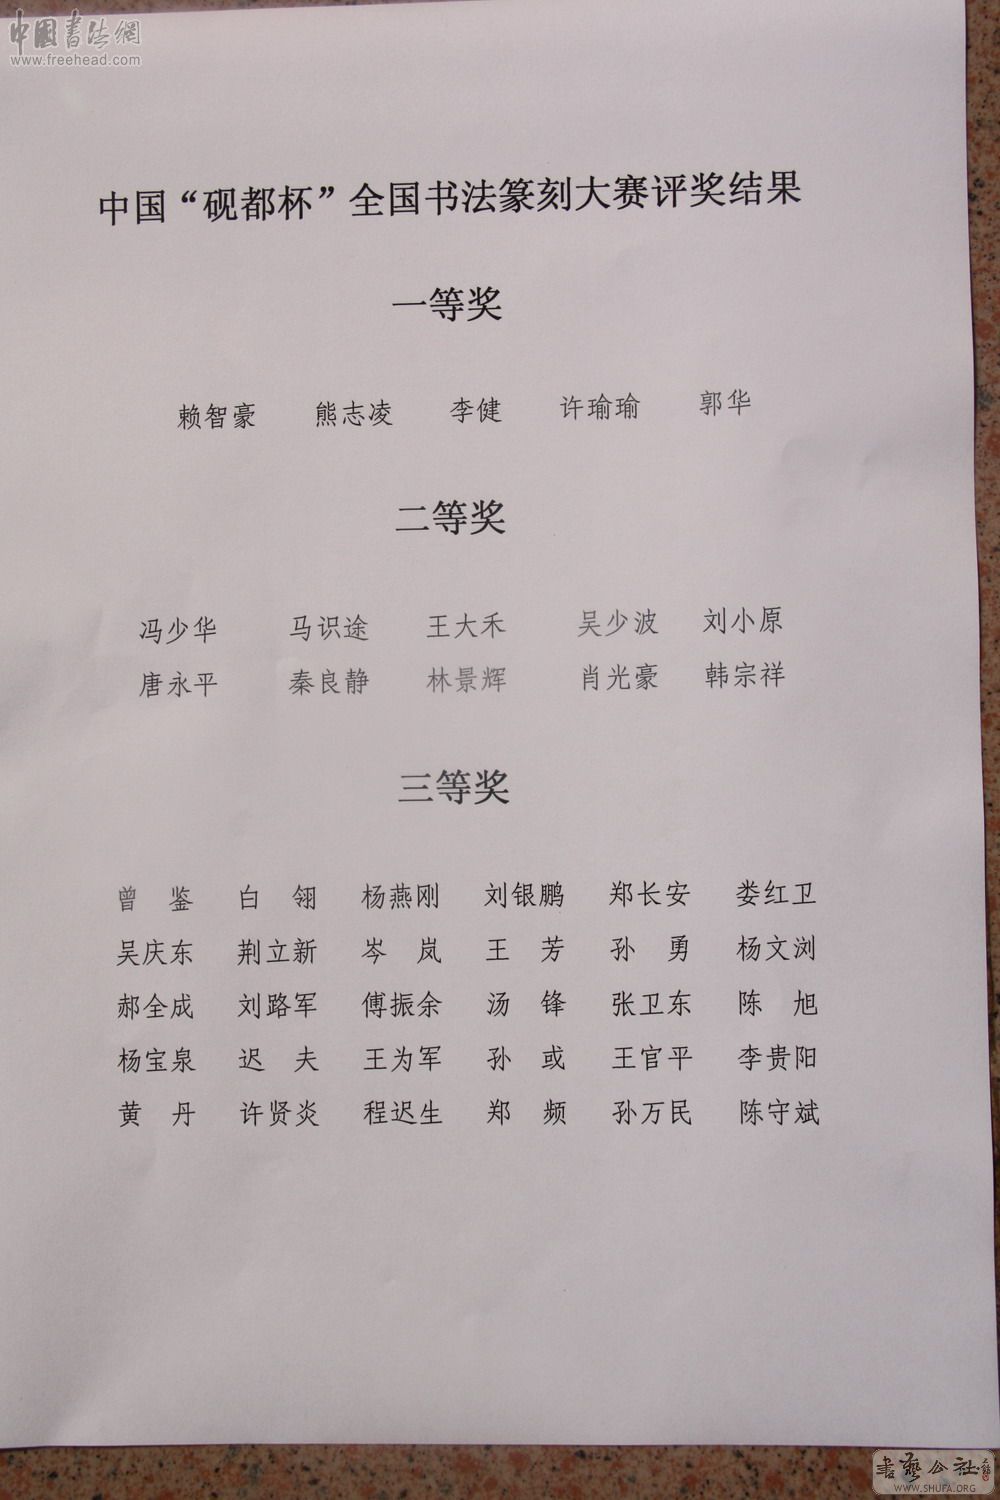 中国書法網
www.freehead.com
中国“砚都杯”全国书法篆刻大赛评奖结果
一等奖
赖智豪 熊志凌 李健 许瑜瑜 郭华
二等奖
冯少华 马识途 王大禾 吴少波 刘小原
唐永平 秦良静 林景辉 肖光豪 韩宗祥
三等奖
曾 鉴 白 翎 杨燕刚 刘银鹏 郑长安 娄红卫
吴庆东 荆立新 岑 岚 王 芳 孙 勇 杨文浏
郝全成 刘路军 傅振余 汤 锋 张卫东 陈 旭
杨宝泉 迟 夫 王为军 孙 或 王官平 李贵阳
黄 丹 许贤炎 程迟生 郑 频 孙万民 陈守斌
書藝公社
WWW.SHUFA.ORG